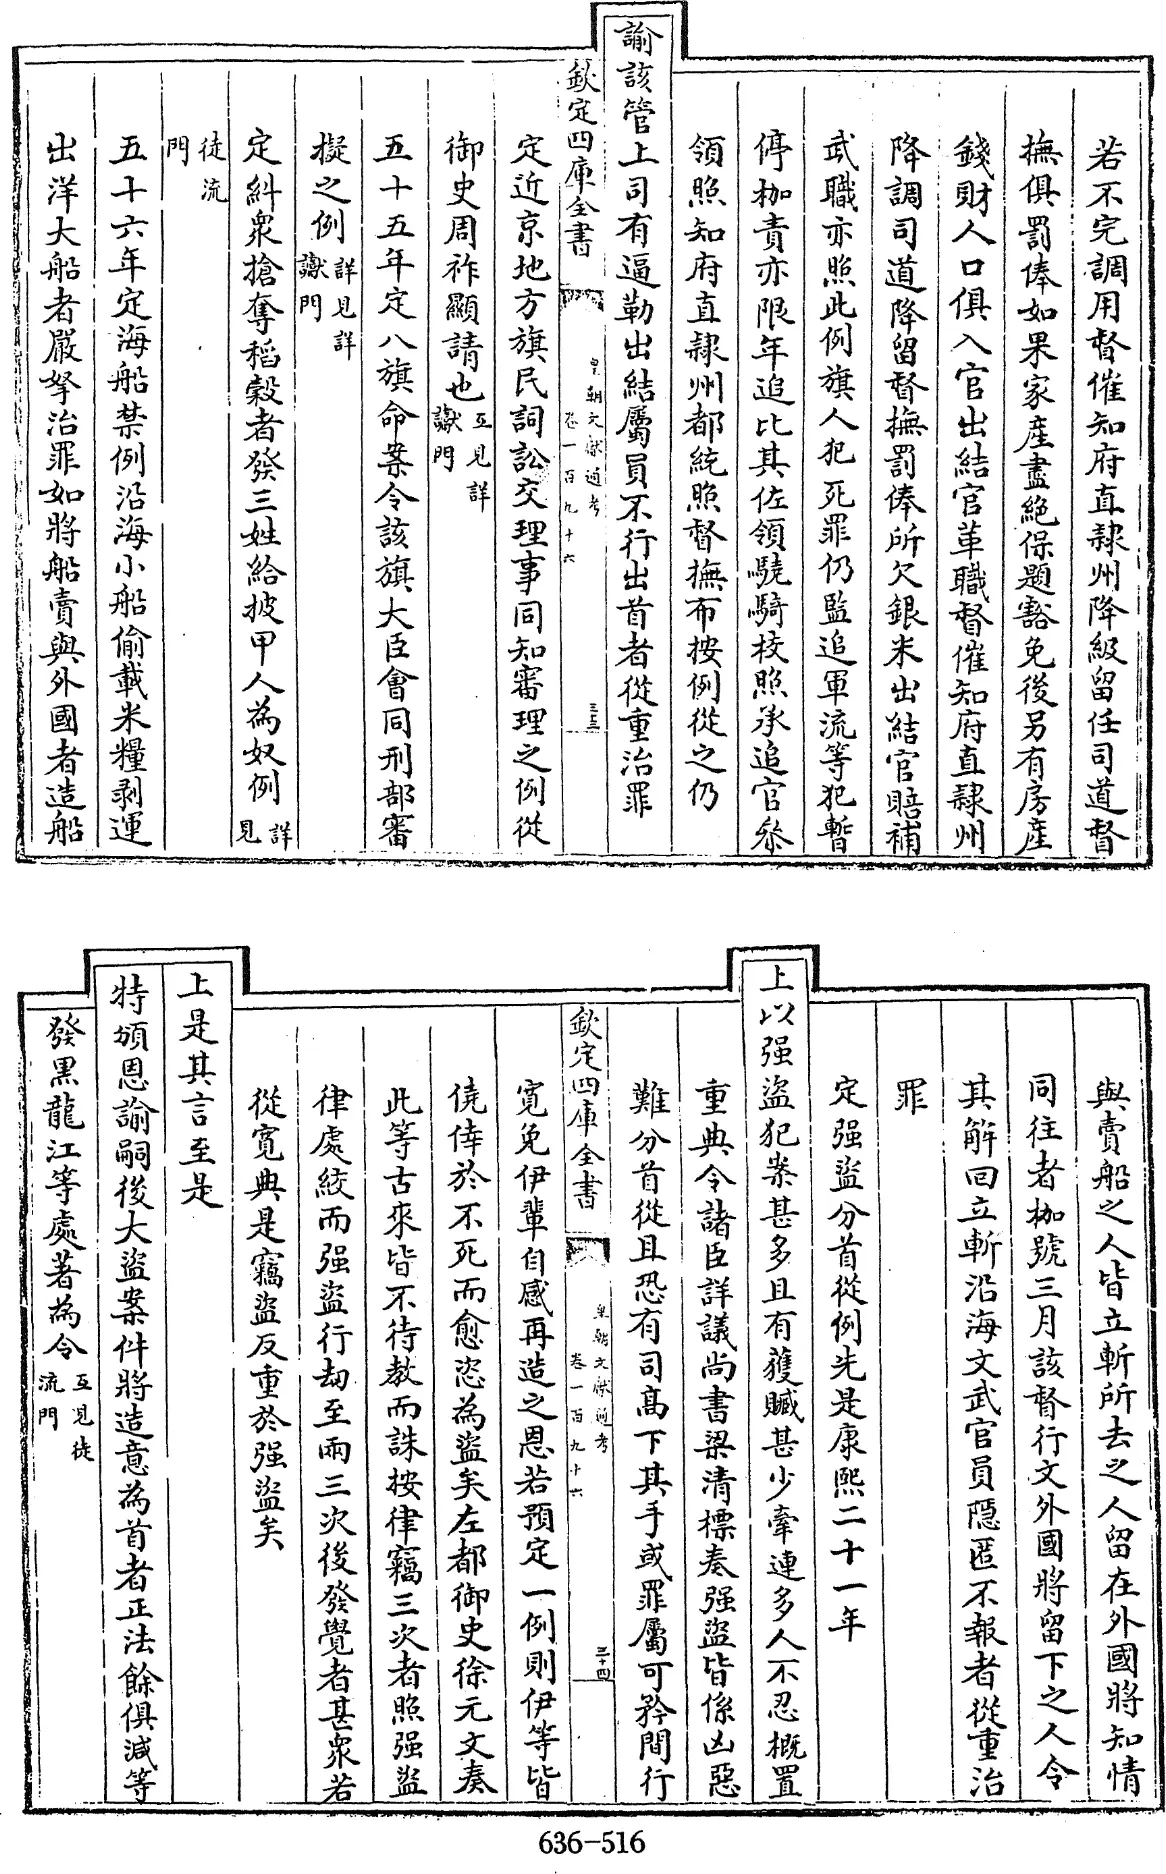 若不完調用督催知府直隸州降級留任司道督
撫俱罰俸如果家產盡絶保題豁免後另有房産
錢財人口俱入官出結官革職督催知府直隸州
降調司道降留督撫罰俸所欠銀米出結官賠補
武職亦照此例旗人犯死罪仍監追軍流等犯暫
停枷責亦限年追比其佐領驍騎校照承追官叅
領照知府直隸州都統照督撫布按例從之仍
諭該管上司有逼勒出結屬員不行出首者從重治罪
欽定四庫全書
皇朝文獻通考
卷一百九十六
三三
定近京地方旗民詞訟交理事同知審理之例從
御史周祚顯請也互見詳讞門
五十五年定八旗命案令該旗大臣會同刑部審
擬之例詳見詳讞門
定糾衆搶奪稻穀者發三姓給披甲人為奴例詳見
徒流門
五十六年定海船禁例沿海小船偷載米糧剥運
出洋大船者嚴拏治罪如將船賣與外國者造船
與賣船之人皆立斬所去之人留在外國將知情
同往者枷號三月該督行文外國將留下之人令
其解回立斬沿海文武官員隱匿不報者從重治
罪
定强盜分首從例先是康熙二十一年
上以强盜犯案甚多且有獲贓甚少牽連多人不忍概置
重典令諸臣詳議尚書梁清標奏强盜皆係凶惡
難分首從且恐有司高下其手或罪屬可矜間行
欽定四庫全書
皇朝文獻通考
卷一百九十六
三十四
寛免伊輩自感再造之恩若預定一例則伊等皆
僥倖於不死而愈恣為盜矣左都御史徐元文奏
此等古來皆不待教而誅按律竊三次者照强盜
律處絞而强盜行劫至兩三次後發覺者甚衆若
從寛典是竊盜反重於强盜矣
上是其言至是
特頒恩諭嗣後大盜案件將造意為首者正法餘俱減等
發黑龍江等處著為令互見徒流門
636-516